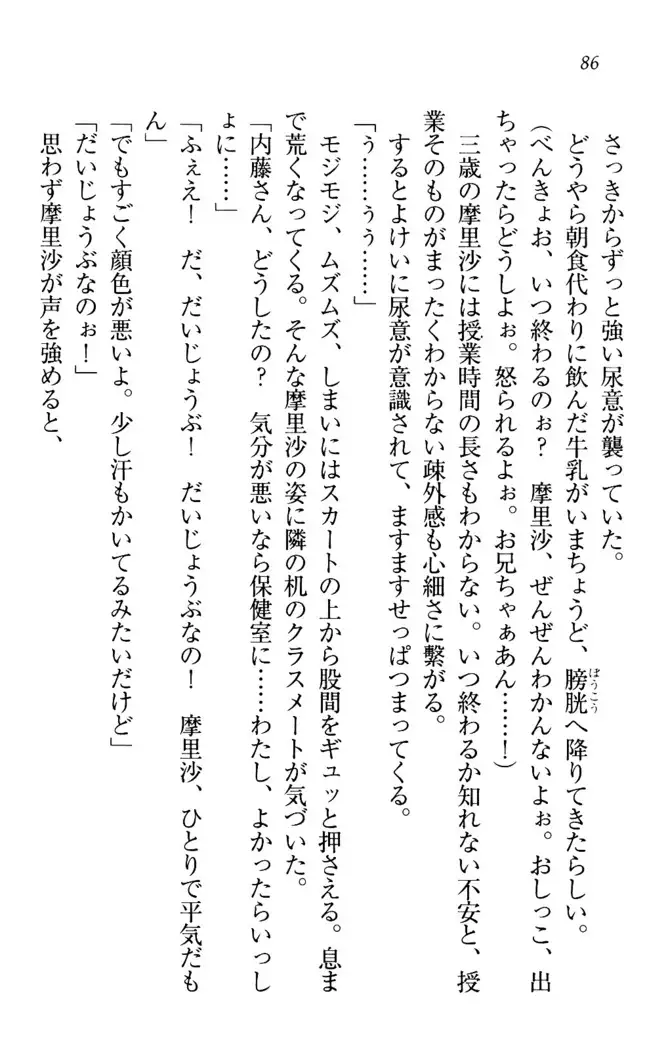 86
さっきからずっと強い尿意が襲っていた。
どうやら朝食代わりに飲んだ牛乳がいまちょうど、膀胱へ降りてきたらしい。
ぼうこう
（べんきょお、いつ終わるのぉ？　摩里沙、ぜんぜんわかんないよぉ。おしっこ、出
ちゃったらどうしよぉ。怒られるよぉ。お兄ちゃぁあん……！）
三歳の摩里沙には授業時間の長さもわからない。いつ終わるか知れない不安と、授
業そのものがまったくわからない疎外感も心細さに繋がる。
するとよけいに尿意が意識されて、ますますせっぱつまってくる。
「ぅ……ぅぅ……」
モジモジ、ムズムズ、しまいにはスカートの上から股間をギュッと押さえる。息ま
で荒くなってくる。そんな摩里沙の姿に隣の机のクラスメートが気づいた。
「内藤さん、どうしたの？　気分が悪いなら保健室に……わたし、よかったらいっし
ょに……」
「ふぇえ！　だ、だいじょうぶ！　だいじょうぶなの！　摩里沙、ひとりで平気だも
ん」
「でもすごく顔色が悪いよ。少し汗もかいてるみたいだけど」
「だいじょうぶなのぉ！」
思わず摩里沙が声を強めると、